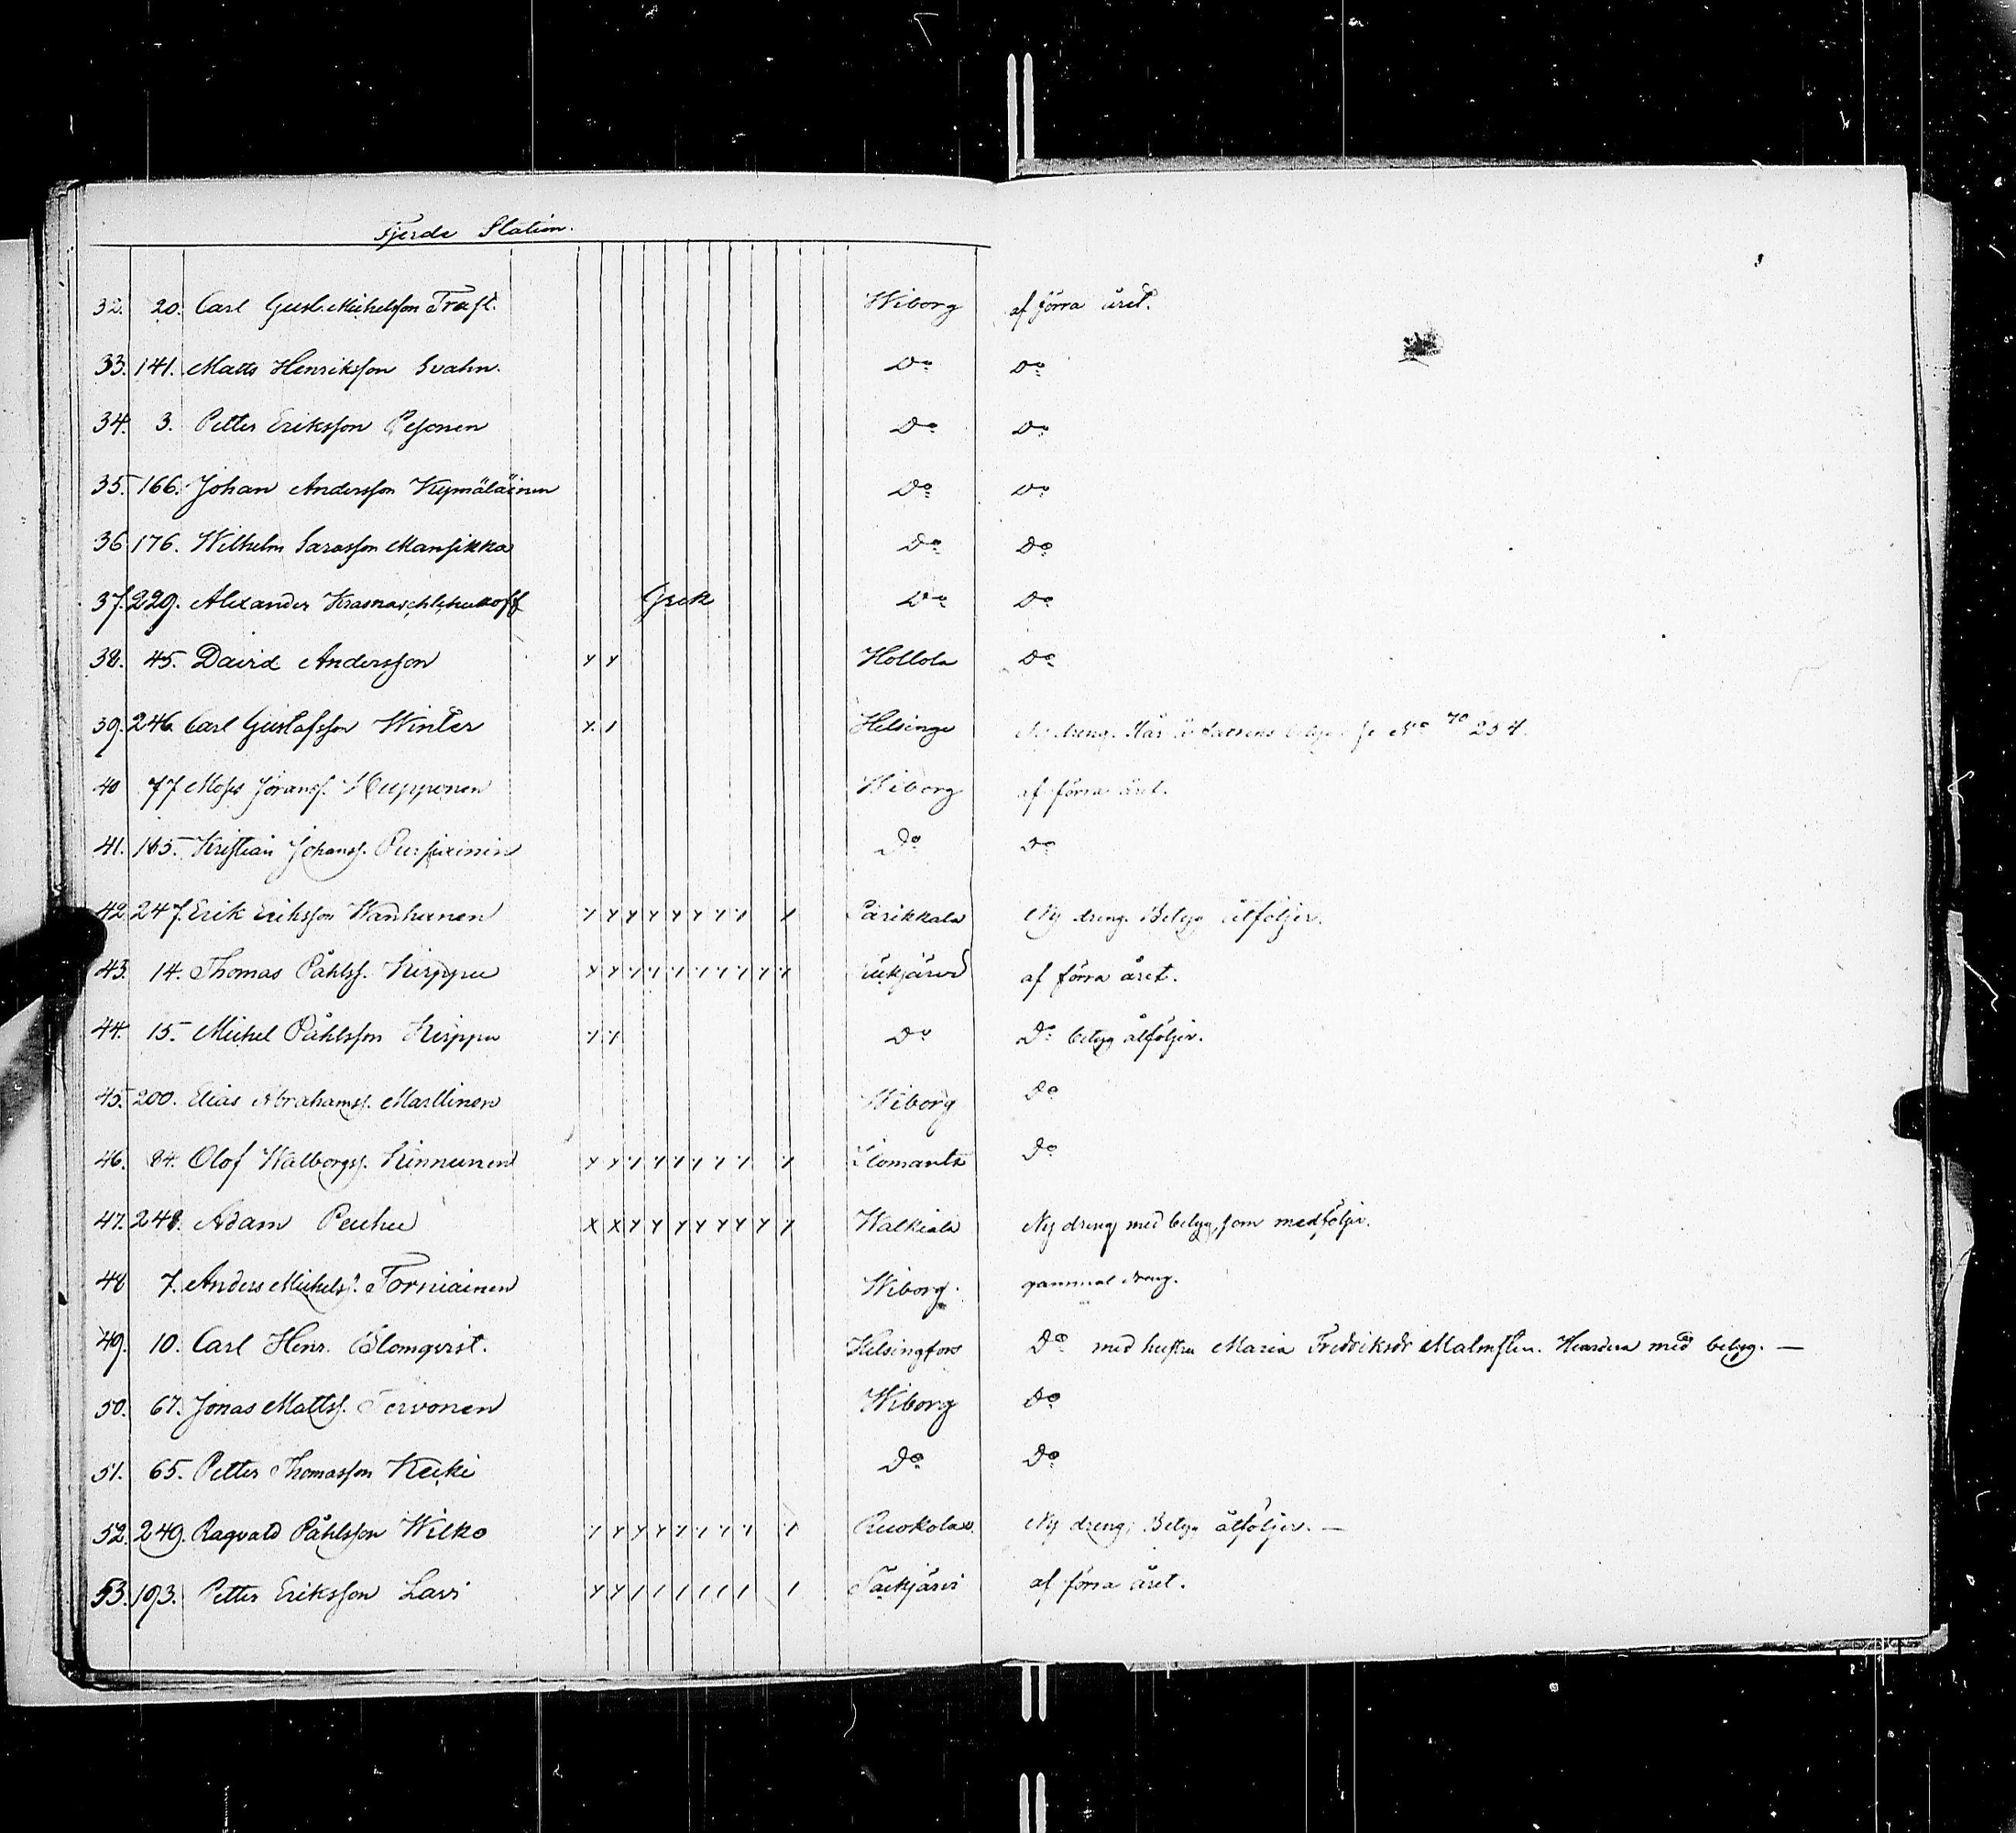 Fjerde Station.
32. 20. Carl Gust. Michelsson Traft. Wiborg af förra året.
33. 141. Matts Henriksson Svahn. Do Do
34. 3. Petter Eriksson Pesonen Do Do
35. 166. Johan Andersson Kymäläinen Do Do
36 176. Wilhelm Sarasson Mansikka Do Do
37. 229. Alexander Grek Do Do
38. 45. David Andersson Hollola Do
39. 246. Carl Gustafsson Winter Helsinge Ny dreng. No 254.
40 77 Moses Göranss. Hupponen Wiborg af förra året.
41. 165. Kristian Johanss. Pursiainen Do Do
42. 247. Erik Eriksson Wanhanen Parikkala Ny dreng. Betyg åtföljer.
43. 14. Thomas Påhlss. Kirppu Säkjärvi af förra året.
44. 15. Michel Påhlsson Kirppu Do Do betyg åtföljer.
45. 200. Elias Abrahamss. Marttinen Wiborg Do
46. 84. Olof Walborgss. Kinnunen Ilomants Do
47. 248. Adam Peuhu Walkiala Ny dreng med betyg, som medföljer.
48 7. Anders Michels. Torniainen Wiborg. gammal dreng.
49. 10. Carl Henr. Blomqvist. Helsingfors Do med hustru Maria Fredriksdr Malmsten. med betyg. —
50. 67. Jonas Mattss. Tervonen Wiborg Do
51. 65. Petter Thomasson Kuki Do Do
52. 249. Ragvald Påhlsson Wilko Ruokolax. Ny dreng; Betyg åtföljer. —
53. 193. Petter Eriksson Lavi Säkjärvi af förra året.